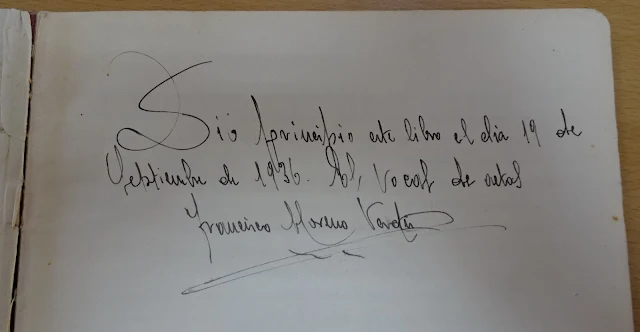 Dió principio este libro el dia 19 de
Septiembre de 1936. El, Vocal de actas
Francisco Moreno